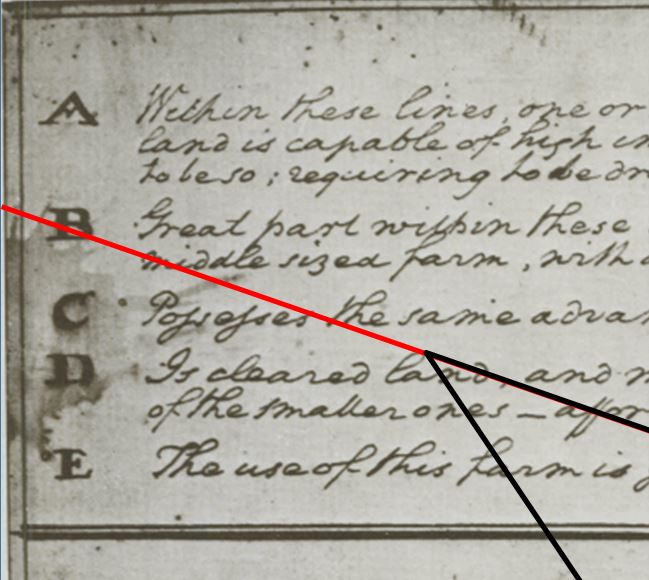 A Within these lines, one or
land is capable of high in
to be so; requiring to be dr
B Great part within these
middle sized farm, with a
C Possesses the same advan
D Is cleared land, and m
of the smaller ones — appr
E The use of this farm is